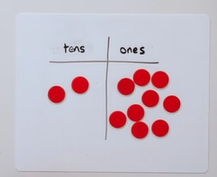 tens ones